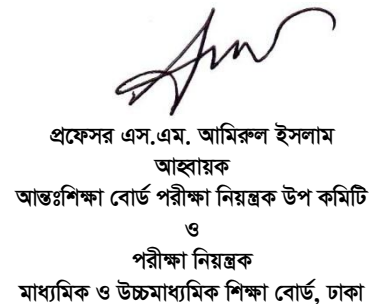 প্রফেসর এস.এম. আমিরুল ইসলাম
আহবায়ক
আন্তঃশিক্ষা বোর্ড পরীক্ষা নিয়ন্ত্রক উপ কমিটি
ও
পরীক্ষা নিয়ন্ত্রক
মাধ্যমিক ও উচ্চমাধ্যমিক শিক্ষা বোর্ড, ঢাকা